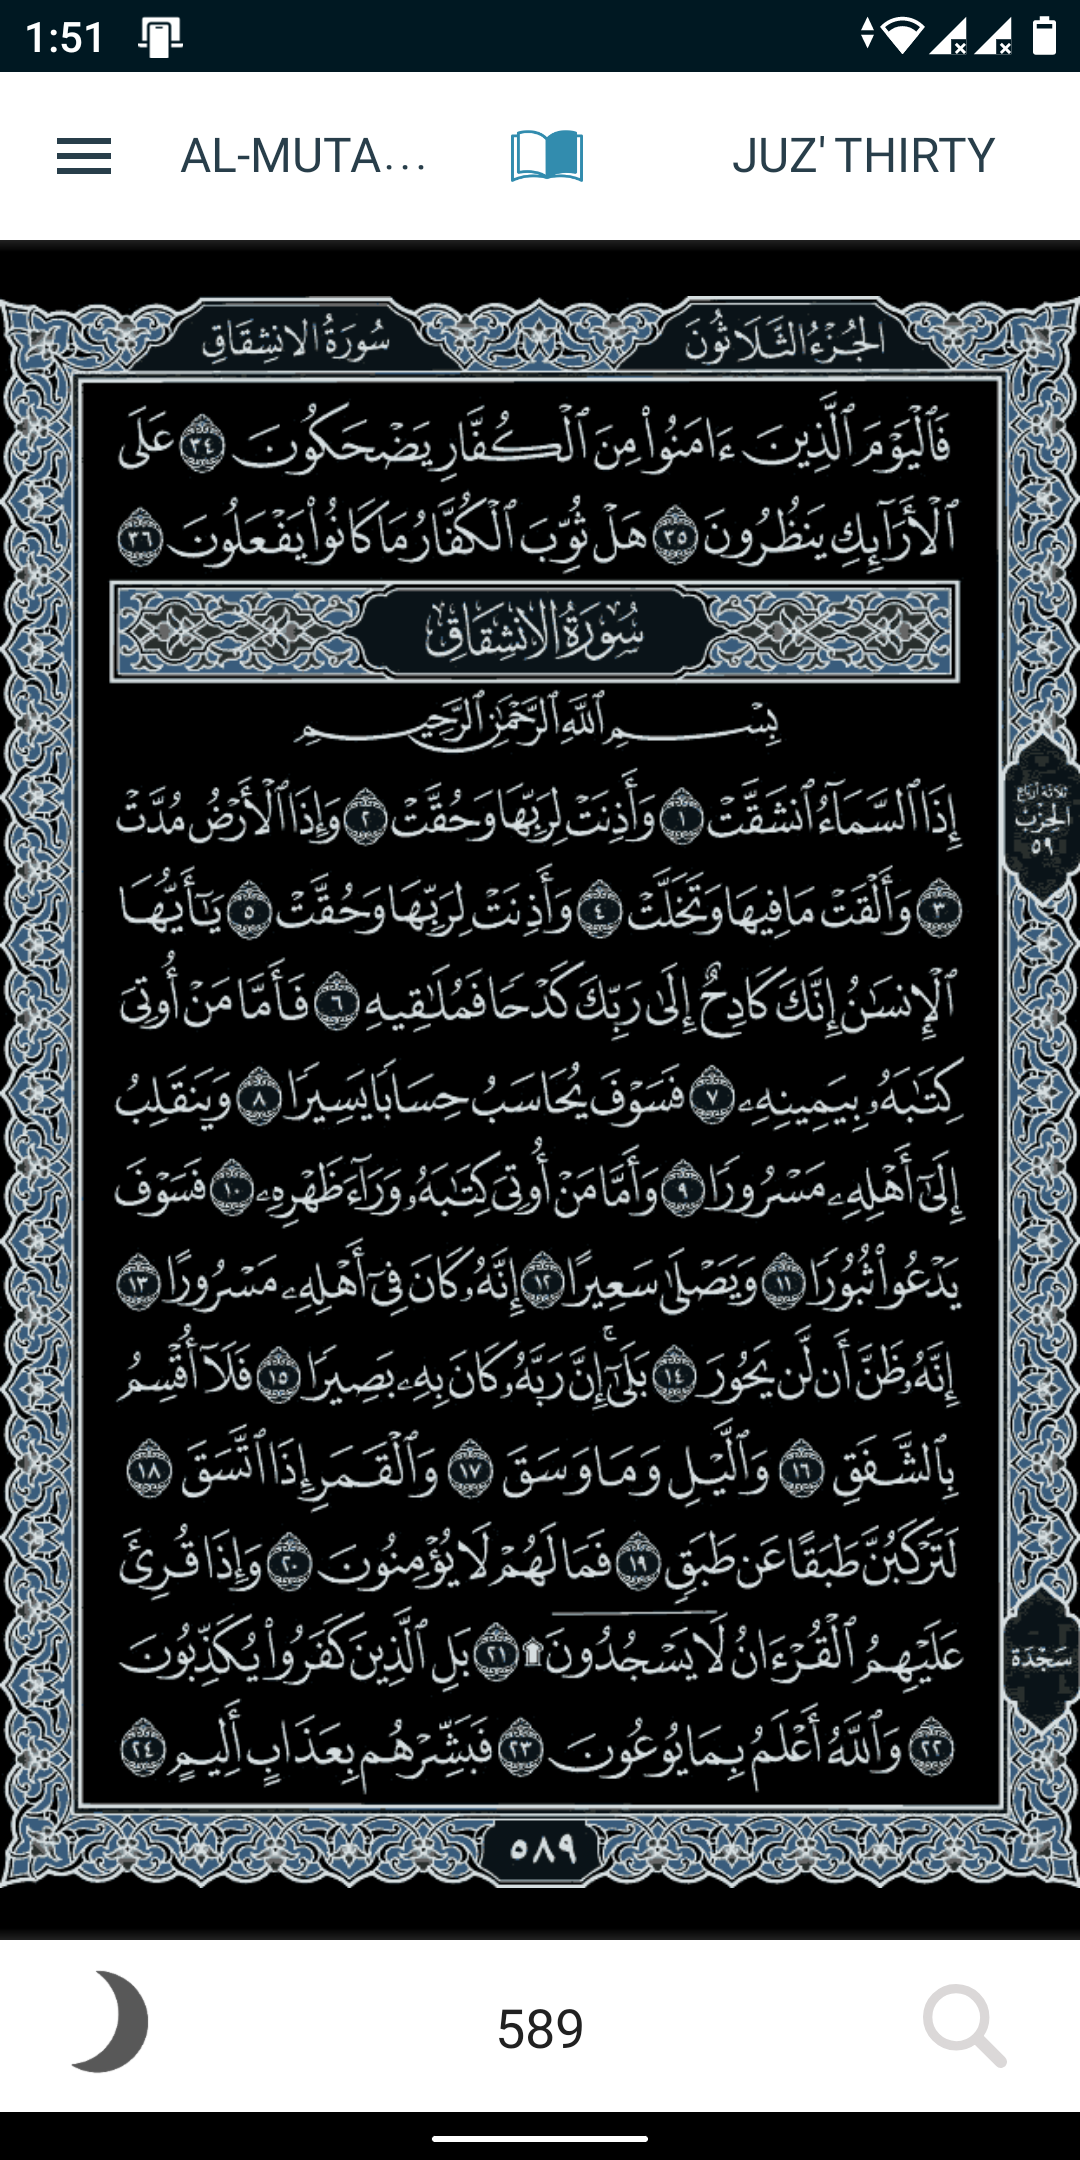 1:51
AL-MUTA...
JUZ' THIRTY
الجُزْءُ الثَّلَاثُونَ
سُورَةُ الانشِقَاقِ
فَٱلْيَوْمَ ٱلَّذِينَ ءَامَنُوا۟ مِنَ ٱلْكُفَّارِ يَضْحَكُونَ ٣٤ عَلَى
ٱلْأَرَآئِكِ يَنظُرُونَ ٣٥ هَلْ ثُوِّبَ ٱلْكُفَّارُ مَا كَانُوا۟ يَفْعَلُونَ ٣٦
سُورَةُ الانشِقَاقِ
بِسْمِ ٱللَّهِ ٱلرَّحْمَٰنِ ٱلرَّحِيمِ
إِذَا ٱلسَّمَآءُ ٱنشَقَّتْ ١ وَأَذِنَتْ لِرَبِّهَا وَحُقَّتْ ٢ وَإِذَا ٱلْأَرْضُ مُدَّتْ
٣ وَأَلْقَتْ مَا فِيهَا وَتَخَلَّتْ ٤ وَأَذِنَتْ لِرَبِّهَا وَحُقَّتْ ٥ يَٰٓأَيُّهَا
ٱلْإِنسَٰنُ إِنَّكَ كَادِحٌ إِلَىٰ رَبِّكَ كَدْحًا فَمُلَٰقِيهِ ٦ فَأَمَّا مَنْ أُوتِىَ
كِتَٰبَهُۥ بِيَمِينِهِۦ ٧ فَسَوْفَ يُحَاسَبُ حِسَابًا يَسِيرًا ٨ وَيَنقَلِبُ
إِلَىٰٓ أَهْلِهِۦ مَسْرُورًا ٩ وَأَمَّا مَنْ أُوتِىَ كِتَٰبَهُۥ وَرَآءَ ظَهْرِهِۦ ١٠ فَسَوْفَ
يَدْعُوا۟ ثُبُورًا ١١ وَيَصْلَىٰ سَعِيرًا ١٢ إِنَّهُۥ كَانَ فِىٓ أَهْلِهِۦ مَسْرُورًا ١٣
إِنَّهُۥ ظَنَّ أَن لَّن يَحُورَ ١٤ بَلَىٰٓۚ إِنَّ رَبَّهُۥ كَانَ بِهِۦ بَصِيرًا ١٥ فَلَآ أُقْسِمُ
بِٱلشَّفَقِ ١٦ وَٱلَّيْلِ وَمَا وَسَقَ ١٧ وَٱلْقَمَرِ إِذَا ٱتَّسَقَ ١٨
لَتَرْكَبُنَّ طَبَقًا عَن طَبَقٍ ١٩ فَمَا لَهُمْ لَا يُؤْمِنُونَ ٢٠ وَإِذَا قُرِئَ
عَلَيْهِمُ ٱلْقُرْءَانُ لَا يَسْجُدُونَ ۩ ٢١ بَلِ ٱلَّذِينَ كَفَرُوا۟ يُكَذِّبُونَ
٢٢ وَٱللَّهُ أَعْلَمُ بِمَا يُوعُونَ ٢٣ فَبَشِّرْهُم بِعَذَابٍ أَلِيمٍ ٢٤
ثلاثة أرباع
الحزب
٥٩
سجدة
٥٨٩
589